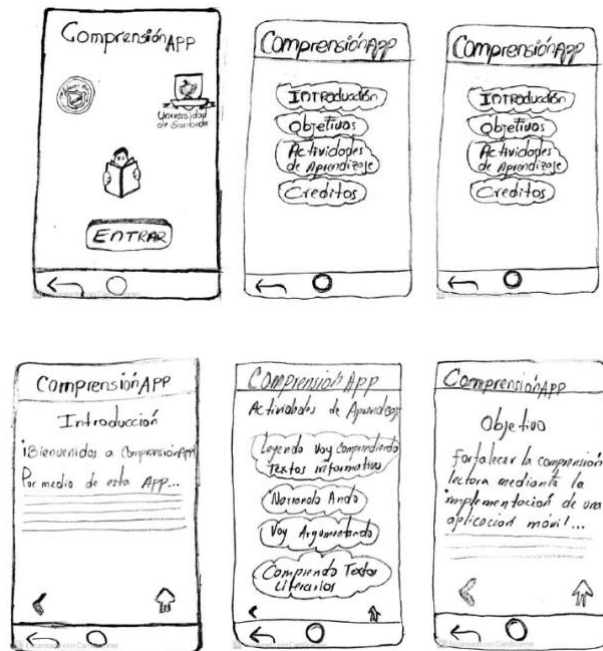 ComprensiónAPP
Universidad
de Santander
ENTRAR
ComprensiónApp
INTRODUCCIÓN
Objetivos
Actividades
de Aprendizaje
Creditos
ComprensiónApp
INTRODUCCIÓN
Objetivos
Actividades
de Aprendizaje
Creditos
ComprensiónAPP
Introducción
¡Bienvenidos a ComprensiónAPP
Por medio de esta App...
Comprensión App
Actividades de Aprendizaje
Leyendo Voy Comprendiendo
Textos informativo
Narrando Ando
Voy Argumentando
Comprendo Textos
Literarios
ComprensiónAPP
Objetivo
fortalecer la comprensión
lectora mediante la
implementación de una
aplicación móvil...
Escaneado con CamScanner